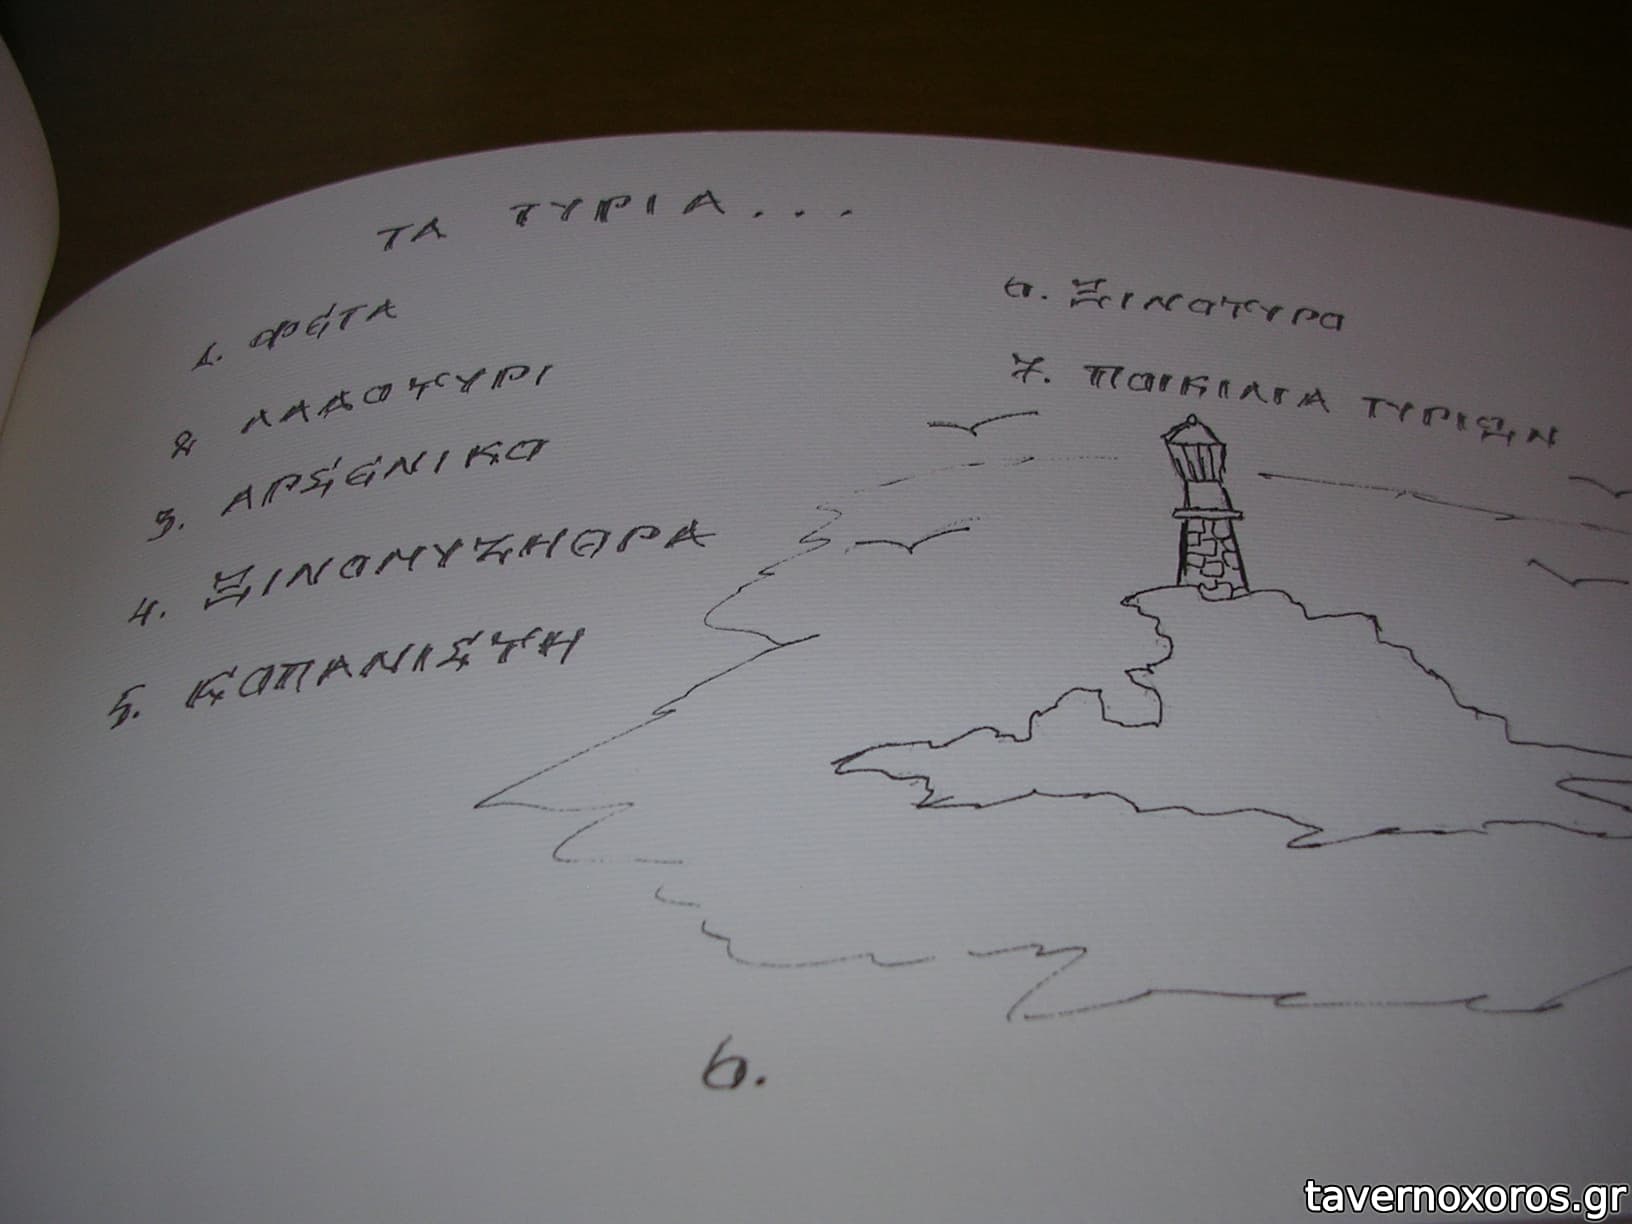 ΤΑ ΤΥΡΙΑ...
1. ΦΕΤΑ
2 ΛΑΔΟΤΥΡΙ
3. ΑΡΣΕΝΙΚΟ
4. ΞΙΝΟΜΥΖΗΘΡΑ
5. ΚΟΠΑΝΙΣΤΗ
6. ΞΙΝΟΤΥΡΟ
7. ΠΟΙΚΙΛΙΑ ΤΥΡΙΩΝ
6.
tavernoxoros.gr